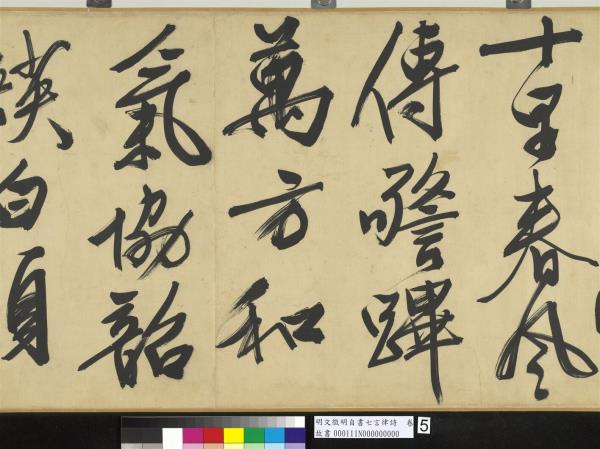 十里春風
傳警蹕
萬方和
氣協韶
韺白頭
明文徵明自書七言律詩 卷 5
故書000111N000000000